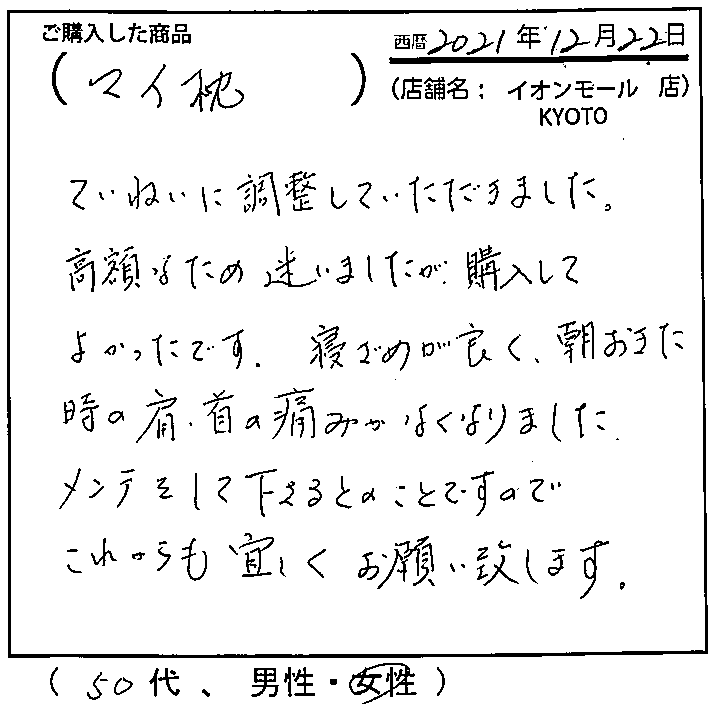 ご購入した商品
西暦2021年12月22日
(マイ枕)
(店舗名： イオンモール 店)
KYOTO
ていねいに調整していただきました。
高額なため迷いましたが購入して
よかったです. 寝ざめが良く、朝おきた
時の肩・首の痛みがなくなりました.
メンテをして下さるとのことですので
これからも宜しくお願い致します。
(50代、男性・女性)